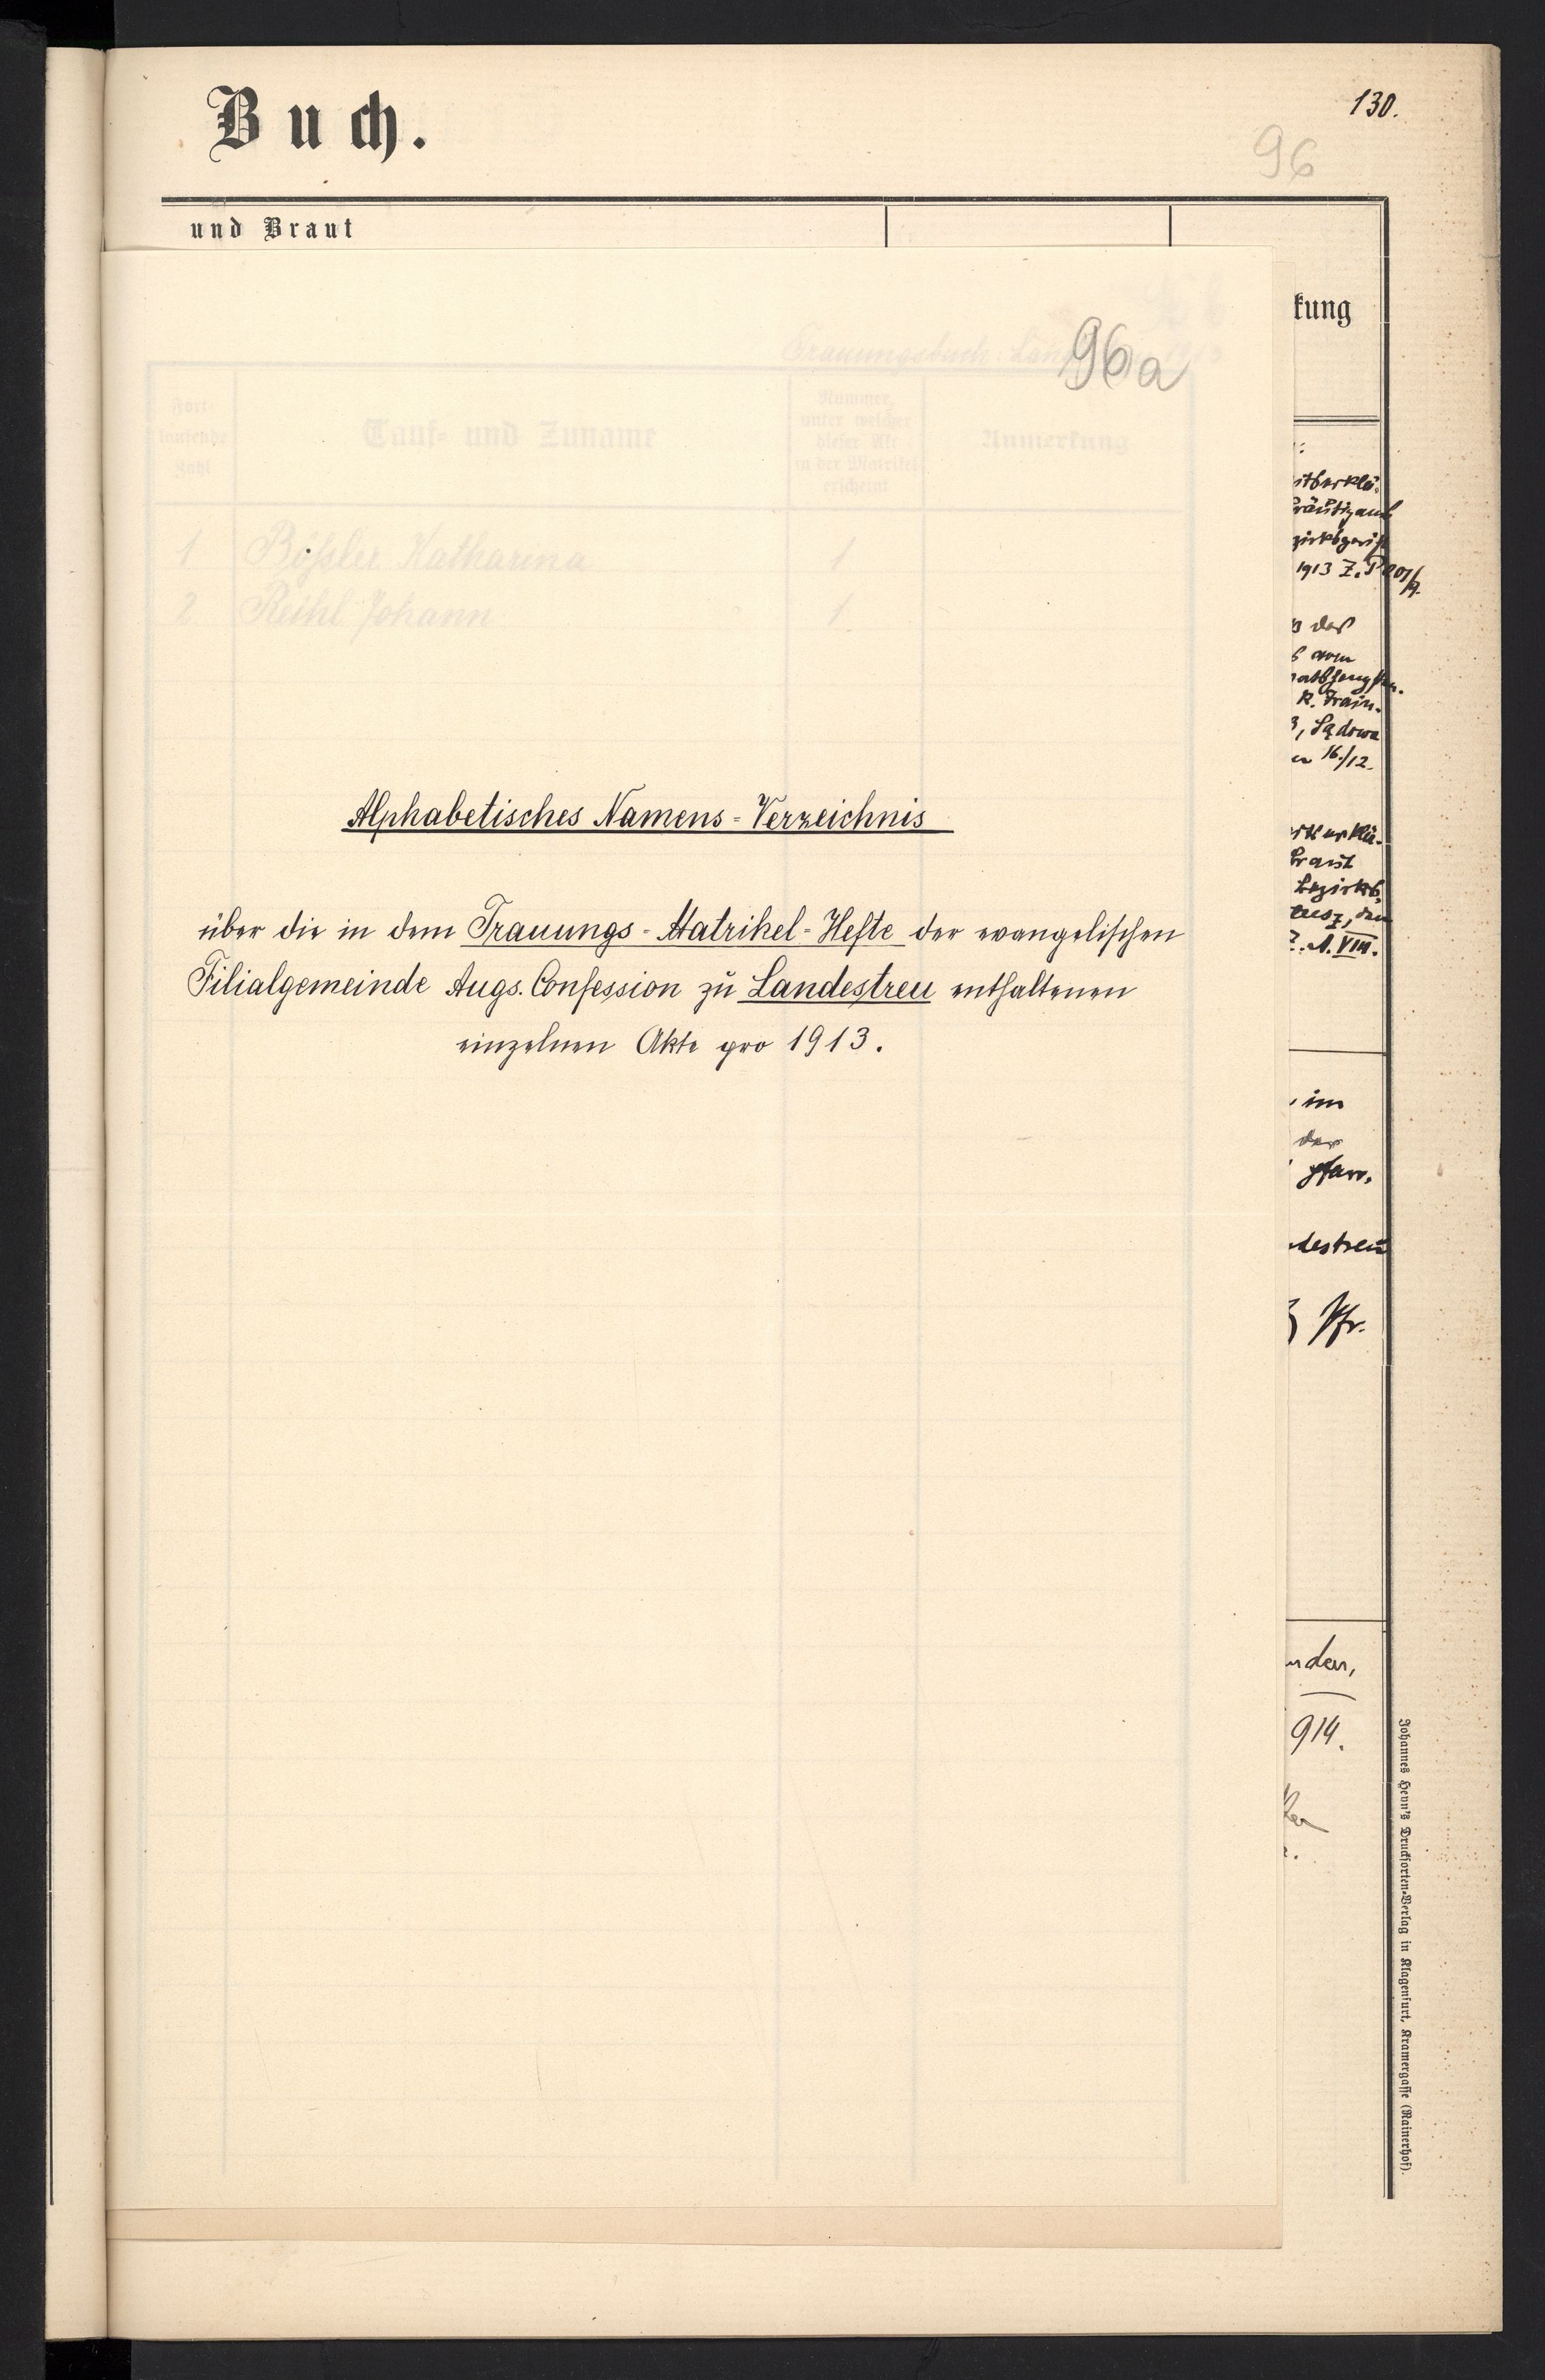 Buch.
130.
96
und Braut
kung
96a
Trauungsbuch
Fort-
laufende
Zahl
Tauf- und Zuname
Nummer,
unter welcher
dieser Akt
in der Matrikel
erscheint
Anmerkung
1 Bößler Katharina 1
2 Reihl Johann 1
Alphabetisches Namens-Verzeichnis
über die in dem Trauungs-Matrikel-Hefte der evangelischen
Filialgemeinde Augs. Confession zu Landestreu enthaltenen
einzelnen Akte pro 1913.
1913 Z.
R. Train-
16./12.
Braut
Bezirks
VIII.
im
der
Pfarr.
destreu
Pfr.
914.
Johannes Heyn's Drucksorten-Verlag in Klagenfurt, Kramergasse (Rainerhof).